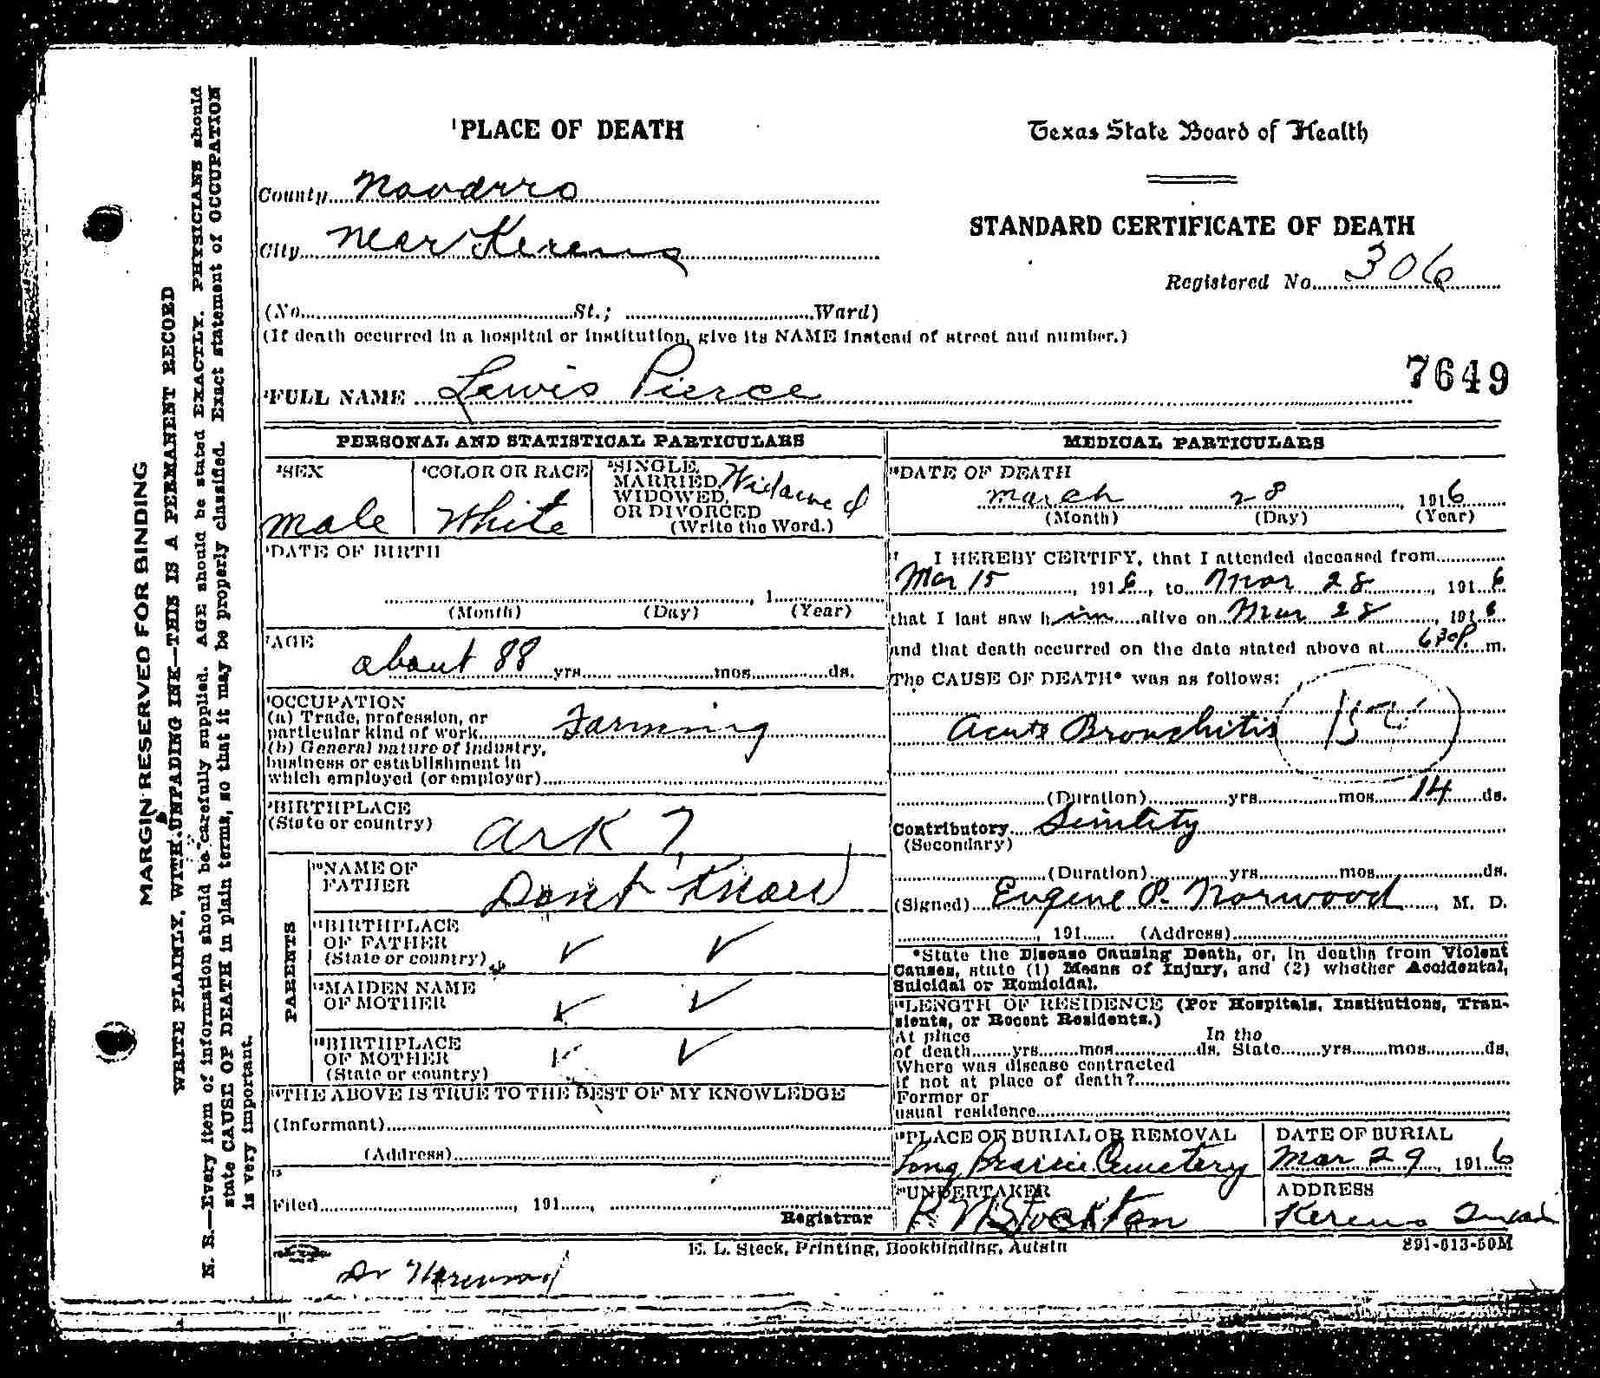 PLACE OF DEATH
County Navarro
City near Kerens
(No. St.; Ward)
(If death occurred in a hospital or institution, give its NAME instead of street and number.)
Texas State Board of Health
STANDARD CERTIFICATE OF DEATH
Registered No. 306
7649
FULL NAME Lewis Pierce
PERSONAL AND STATISTICAL PARTICULARS
SEX
male
COLOR OR RACE
White
SINGLE,
MARRIED,
WIDOWED,
OR DIVORCED
(Write the Word.)
Widowed
DATE OF BIRTH
, 1
(Month) (Day) (Year)
AGE
about 88 yrs. mos. ds.
OCCUPATION
(a) Trade, profession, or
particular kind of work Farming
(b) General nature of industry,
business or establishment in
which employed (or employer)
BIRTHPLACE
(State or country)
Ark ?
PARENTS
NAME OF
FATHER
Dont Know
BIRTHPLACE
OF FATHER
(State or country)
MAIDEN NAME
OF MOTHER
BIRTHPLACE
OF MOTHER
(State or country)
THE ABOVE IS TRUE TO THE BEST OF MY KNOWLEDGE
(Informant)
(Address)
Filed , 191 ,
Registrar
MEDICAL PARTICULARS
DATE OF DEATH
march 28, 1916
(Month) (Day) (Year)
I HEREBY CERTIFY, that I attended deceased from
Mar 15, 1916, to Mar 28, 1916
that I last saw him alive on Mar 28, 1916
and that death occurred on the date stated above at 630P m.
The CAUSE OF DEATH* was as follows:
Acute Bronchitis
(Duration) yrs. mos. 14 ds.
Contributory
(Secondary)
(Duration) yrs. mos. ds.
(Signed) Eugene P. Norwood, M. D.
, 191 (Address)
*State the Disease Causing Death, or, in deaths from Violent
Causes, state (1) Means of Injury, and (2) whether Accidental,
Suicidal or Homicidal.
LENGTH OF RESIDENCE (For Hospitals, Institutions, Tran-
sients, or Recent Residents.)
At place In the
of death yrs. mos. ds. State yrs. mos. ds.
Where was disease contracted
if not at place of death?
Former or
usual residence
PLACE OF BURIAL OR REMOVAL
Long Prairie Cemetery
DATE OF BURIAL
Mar 29, 1916
UNDERTAKER
Stockton
ADDRESS
Kerens
E. L. Steck, Printing, Bookbinding, Austin
891-613-50M
Dr Norwood
MARGIN RESERVED FOR BINDING
WRITE PLAINLY, WITH UNFADING INK—THIS IS A PERMANENT RECORD
N. B.—Every item of information should be carefully supplied. AGE should be stated EXACTLY. PHYSICIANS should
state CAUSE OF DEATH in plain terms, so that it may be properly classified. Exact statement of OCCUPATION
is very important.